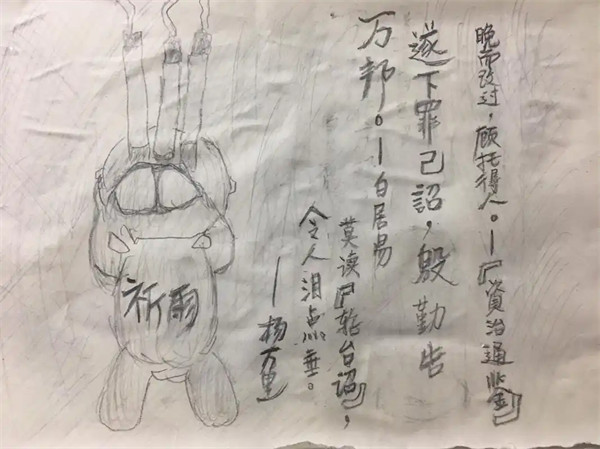 晚而改过，顾托得人。—『資治通鉴』
遂下罪己詔，殷勤告
万邦。—白居易
莫读『轮台诏』，
令人泪点垂。
—杨万里
祈雨